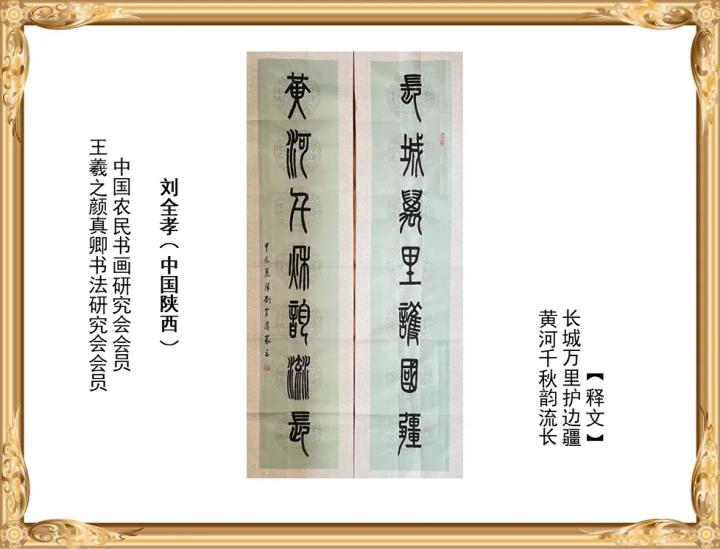 【释文】
长城万里护边疆
黄河千秋韵流长
長城萬里護國疆
黃河千秋韵流長
甲辰 劉全孝
刘全孝（中国陕西）
中国农民书画研究会会员
王羲之颜真卿书法研究会会员